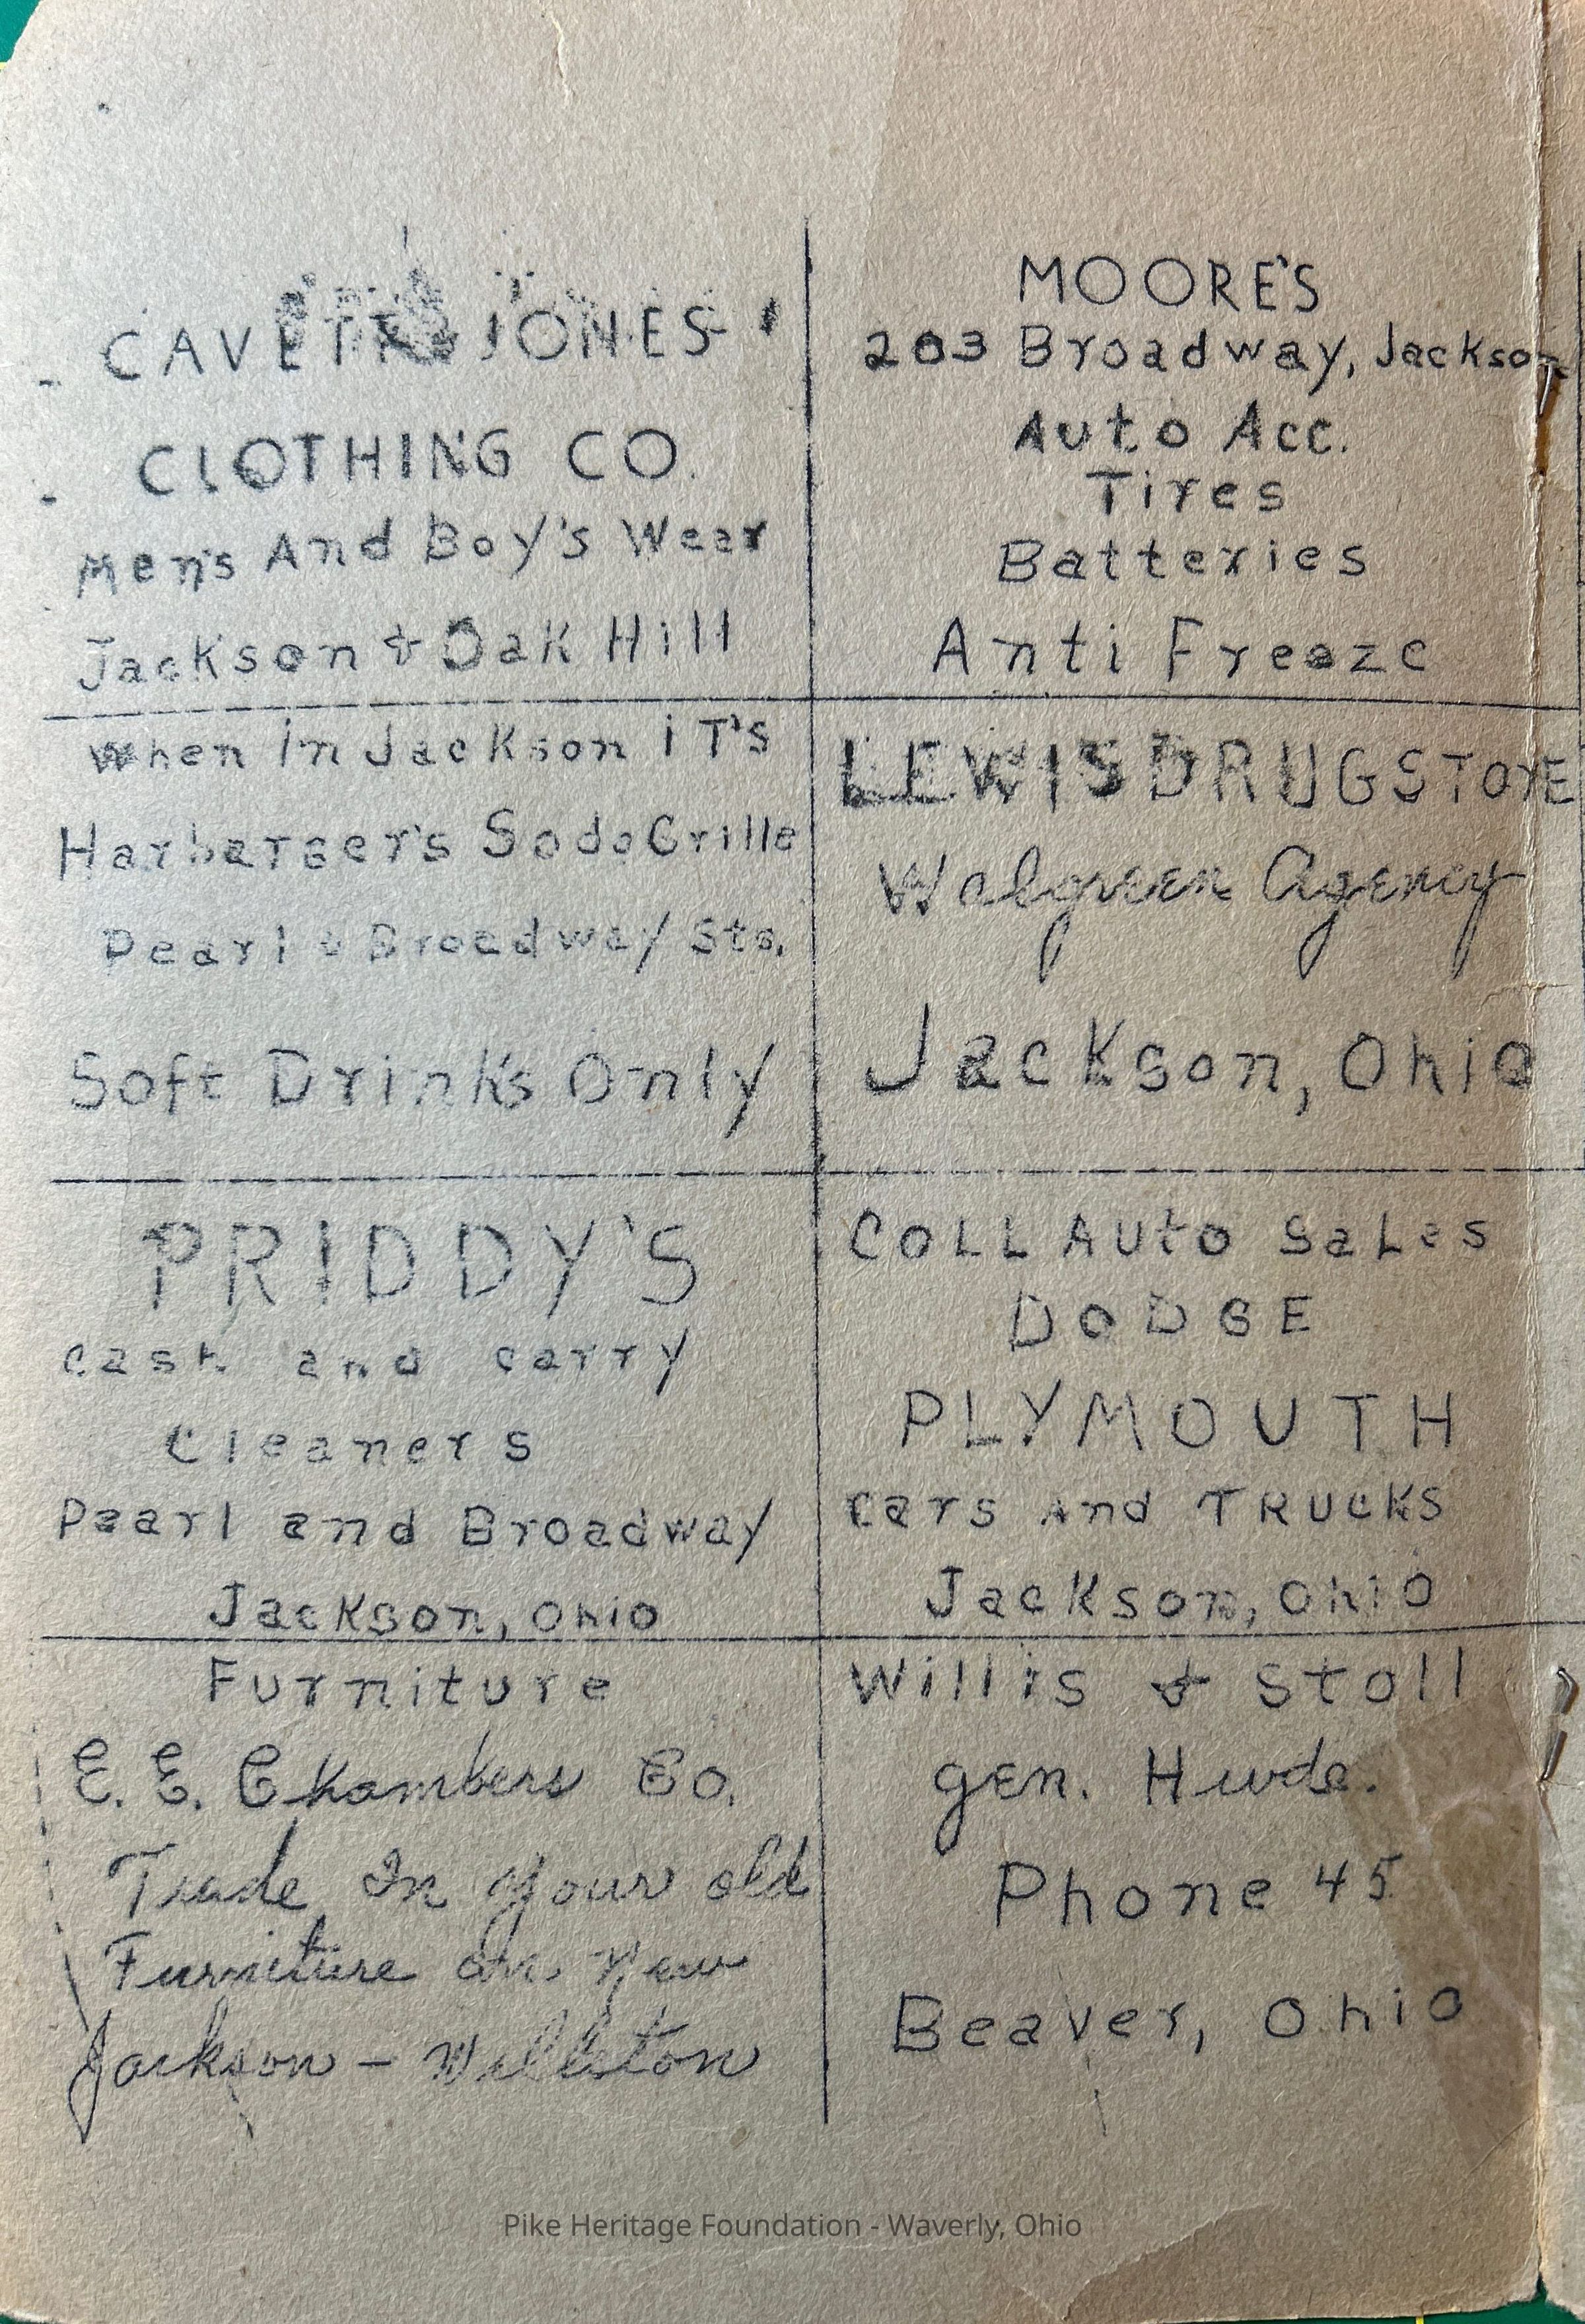 CAVETT & JONES
CLOTHING CO.
Men's And Boy's Wear
Jackson & Oak Hill
When in Jackson iT's
Harbarger's Soda Grille
Pearl & Broadway Sts.
Soft Drinks Only
PRIDDY'S
cash and carry
Cleaners
Pearl and Broadway
Jackson, Ohio
Furniture
E. E. Chambers Co.
Trade In your old
Furniture on New
Jackson - Wellston
MOORE'S
203 Broadway, Jackson
Auto Acc.
Tires
Batteries
Anti Freeze
LEWIS DRUG STORE
Walgreen Agency
Jackson, Ohio
COLL AUto SaLes
DODGE
PLYMOUTH
Cars And TRUCKS
Jackson, Ohio
Willis & Stoll
gen. Hwde.
Phone 45
Beaver, Ohio
Pike Heritage Foundation - Waverly, Ohio